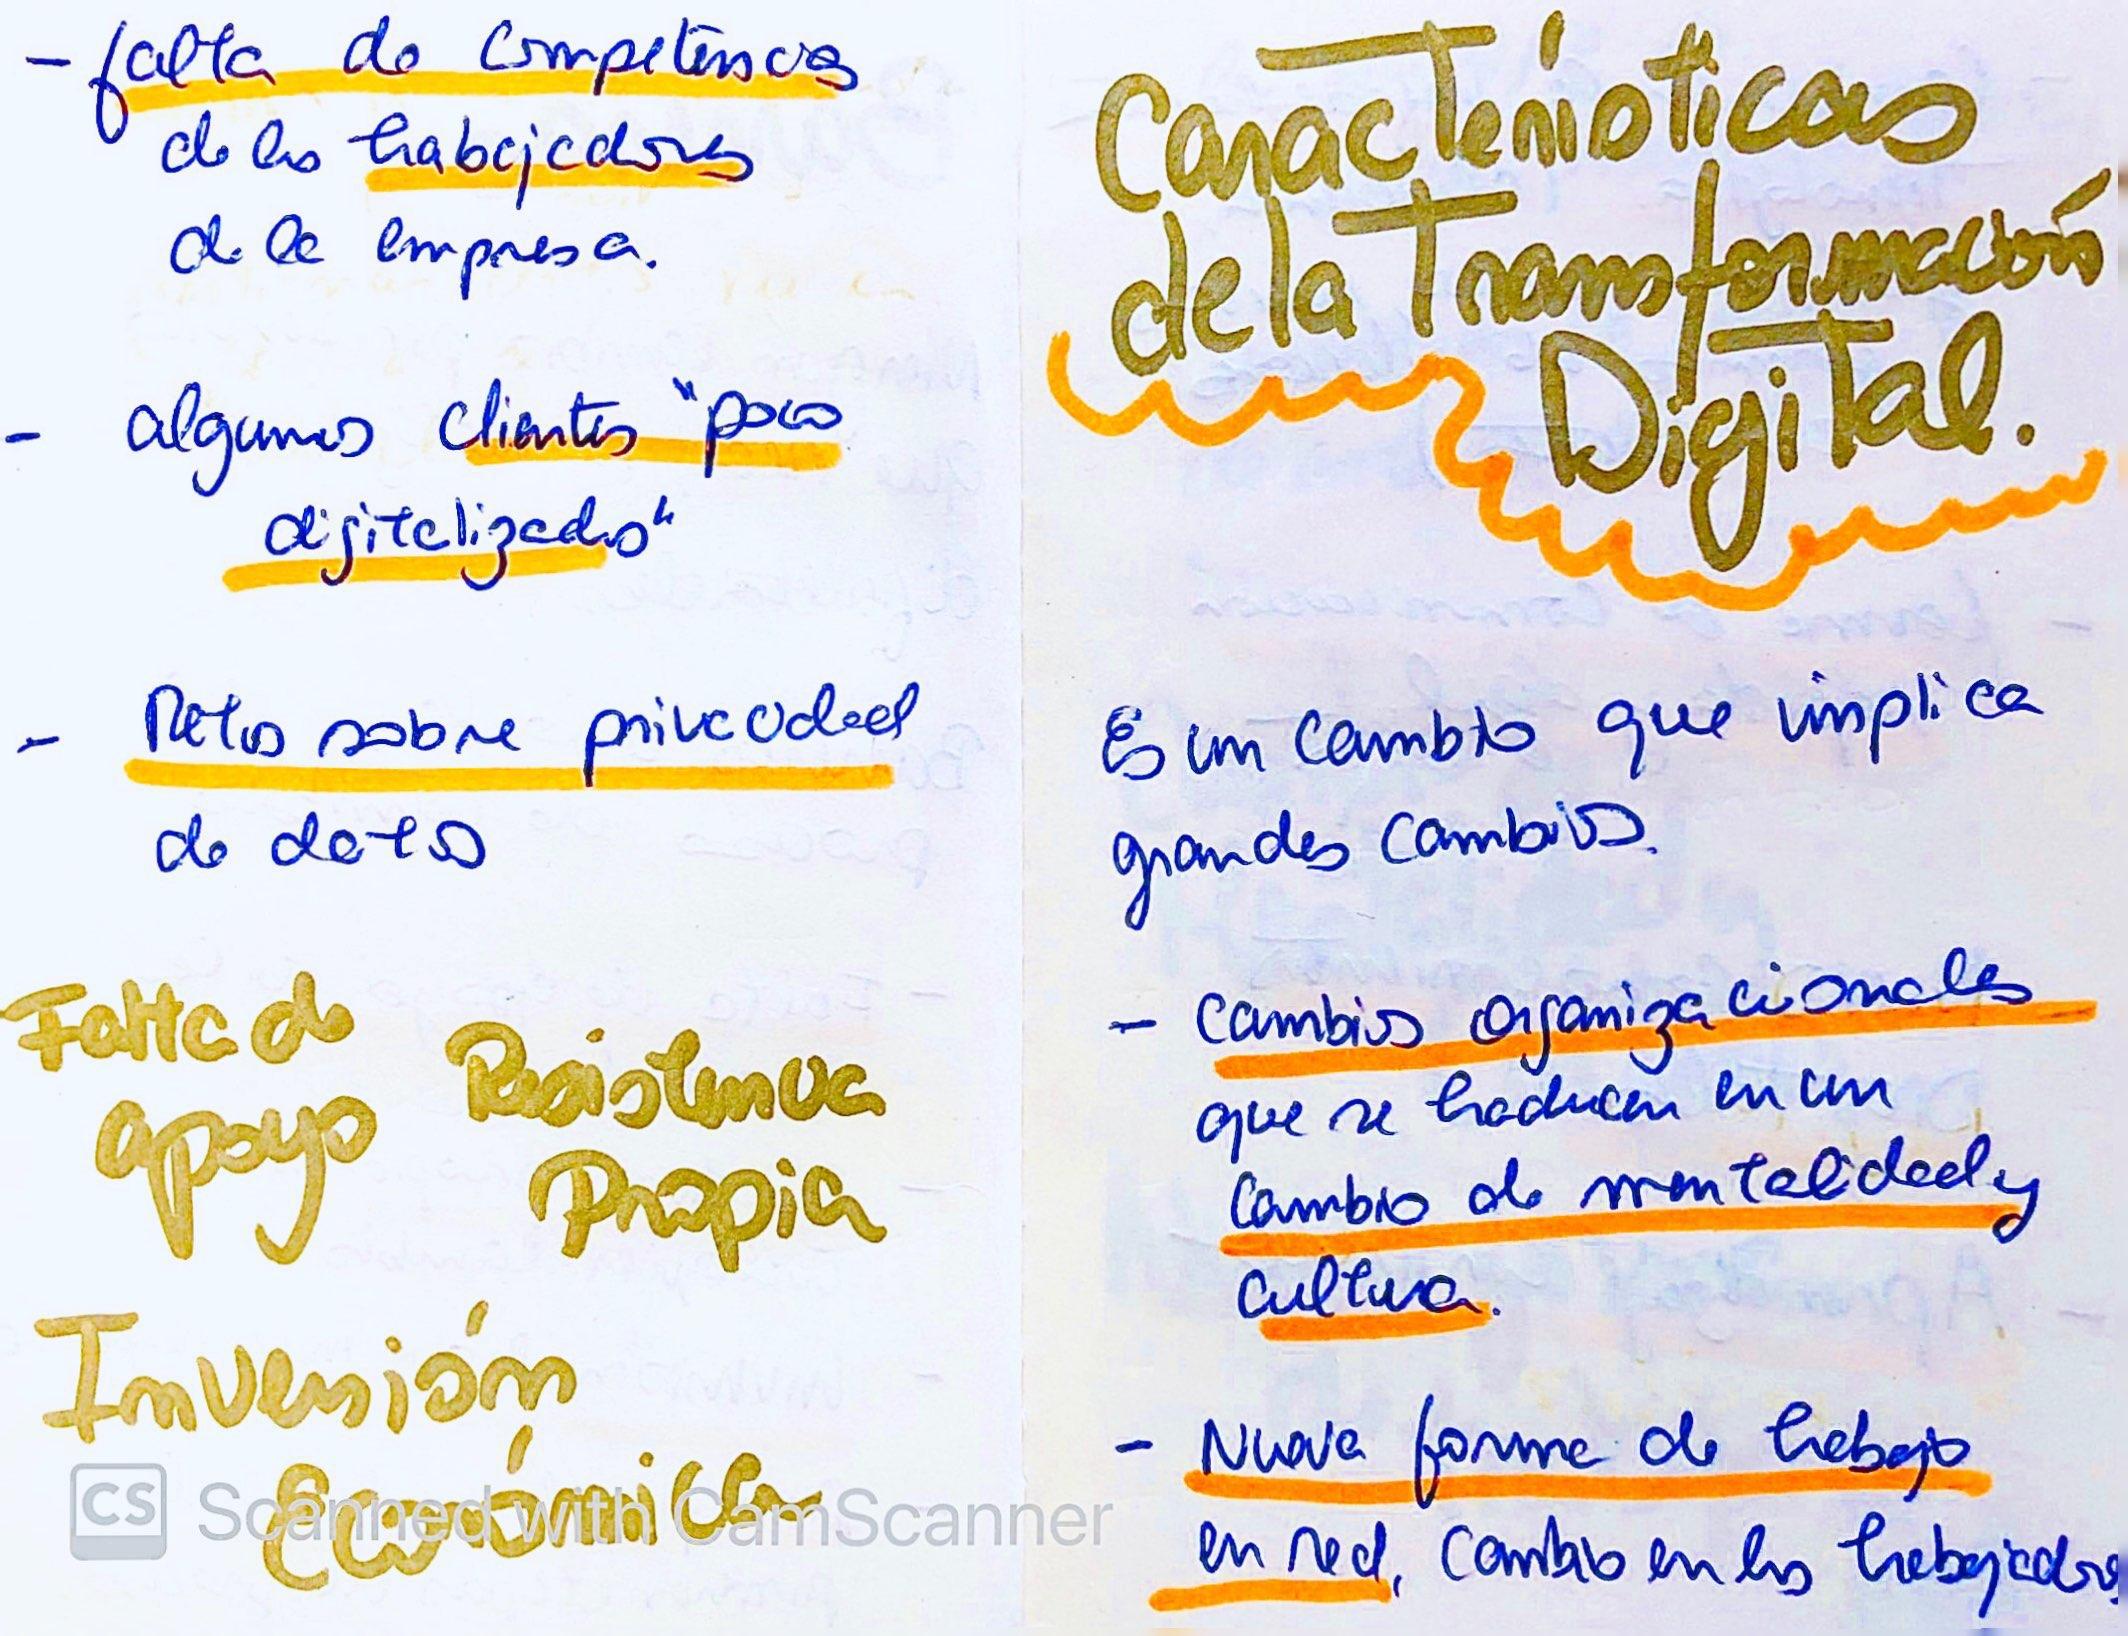 - falta de competencias
de los trabajadores
de la empresa.
- algunos clientes "poco
digitalizados"
- Retos sobre privacidad
de datos
Falta de
apoyo
Resistencia
Propia
Inversión
Económica
Características
de la Transformación
Digital.
Es un cambio que implica
grandes cambios.
- Cambios organizacionales
que se traducen en un
cambio de mentalidad y
cultura.
- Nueva forma de trabajo
en red, cambio en los trabajadores
CS Scanned with CamScanner